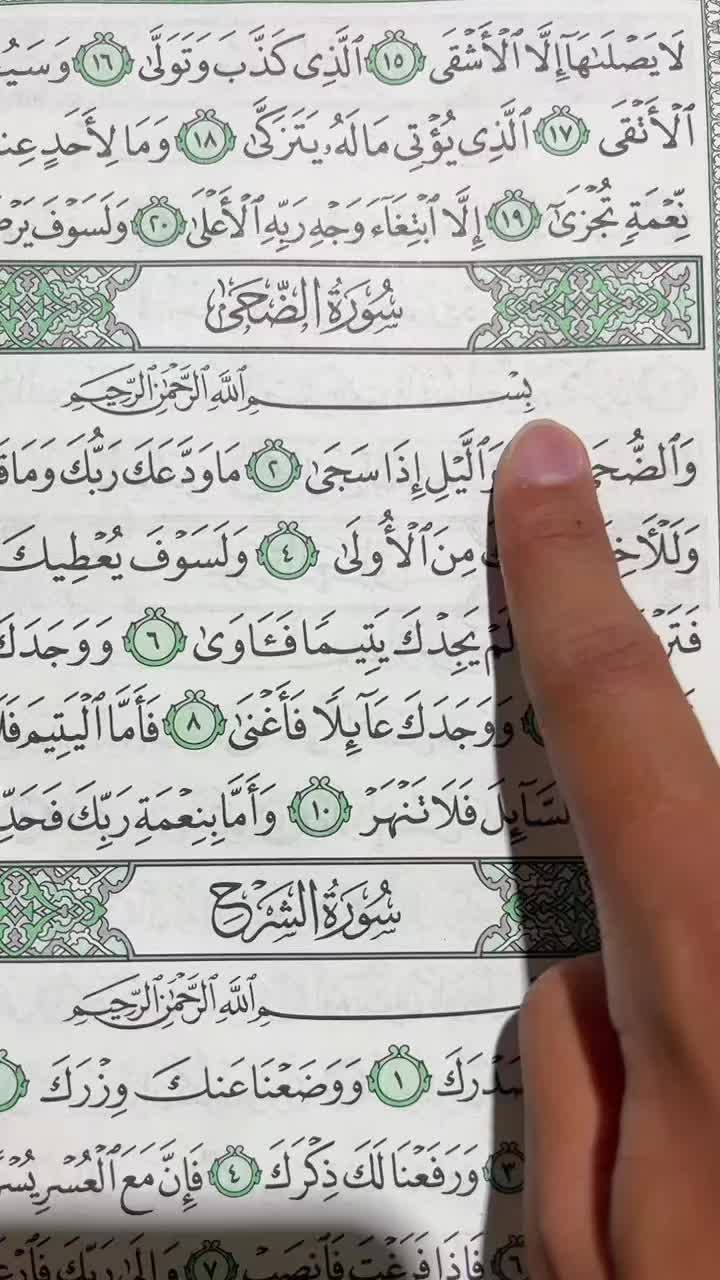 لَا يَصْلَىٰهَآ إِلَّا ٱلْأَشْقَى ١٥ ٱلَّذِى كَذَّبَ وَتَوَلَّىٰ ١٦
ٱلْأَتْقَى ١٧ ٱلَّذِى يُؤْتِى مَالَهُۥ يَتَزَكَّىٰ ١٨ وَمَا لِأَحَدٍ
نِّعْمَةٍ تُجْزَىٰٓ ١٩ إِلَّا ٱبْتِغَآءَ وَجْهِ رَبِّهِ ٱلْأَعْلَىٰ ٢٠ وَلَسَوْفَ
سُورَةُ الضُّحَىٰ
بِسْمِ ٱللَّهِ ٱلرَّحْمَٰنِ ٱلرَّحِيمِ
وَٱلَّيْلِ إِذَا سَجَىٰ ٢ مَا وَدَّعَكَ رَبُّكَ وَمَا
مِنَ ٱلْأُولَىٰ ٤ وَلَسَوْفَ يُعْطِيكَ
يَجِدْكَ يَتِيمًا فَـَٔاوَىٰ ٦ وَوَجَدَكَ
وَوَجَدَكَ عَآئِلًا فَأَغْنَىٰ ٨ فَأَمَّا ٱلْيَتِيمَ
فَلَا تَنْهَرْ ١٠ وَأَمَّا بِنِعْمَةِ رَبِّكَ
سُورَةُ الشَّرْحِ
ٱللَّهِ ٱلرَّحْمَٰنِ ٱلرَّحِيمِ
١ وَوَضَعْنَا عَنكَ وِزْرَكَ
٣ وَرَفَعْنَا لَكَ ذِكْرَكَ ٤ فَإِنَّ مَعَ ٱلْعُسْرِ
٦ فَإِذَا فَرَغْتَ فَٱنصَبْ ٧ وَإِلَىٰ رَبِّكَ